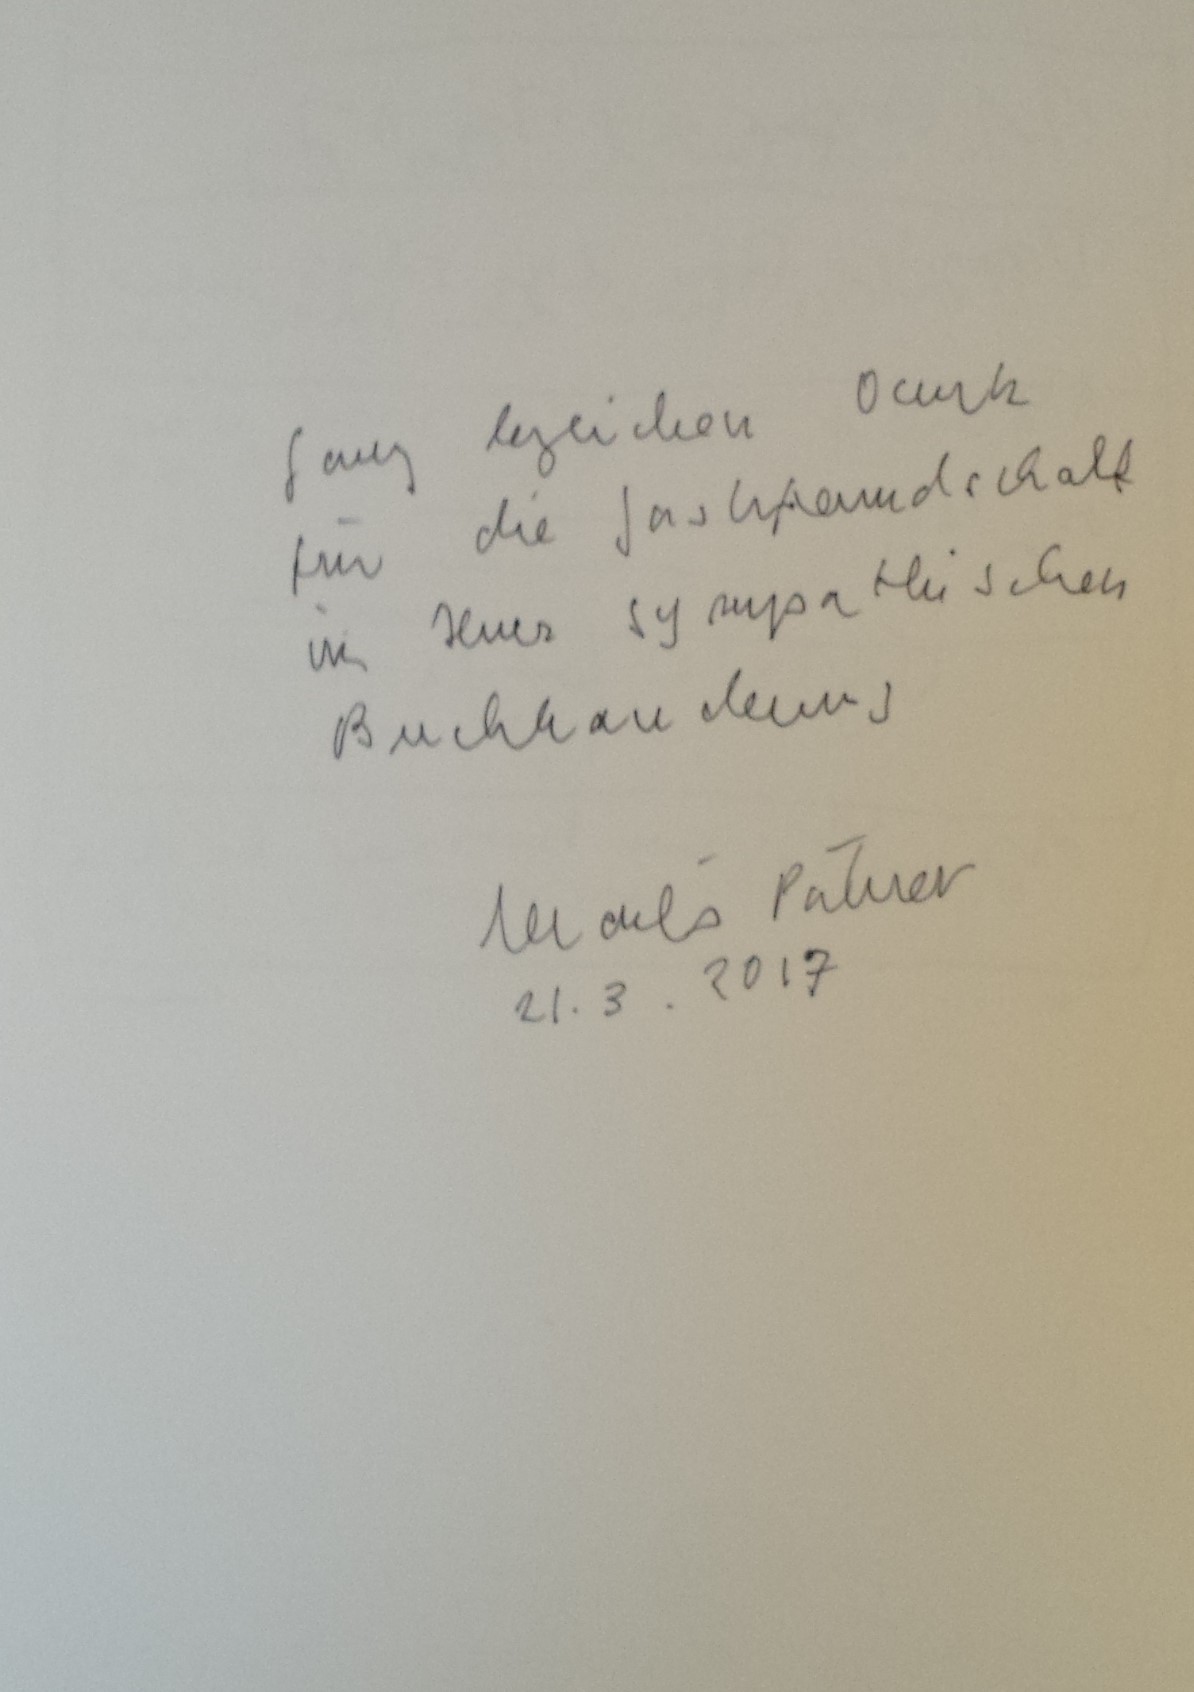 Ganz herzlichen Dank
für die Gastfreundschaft
in Ihrer sympathischen
Buchhandlung
21.3.2017